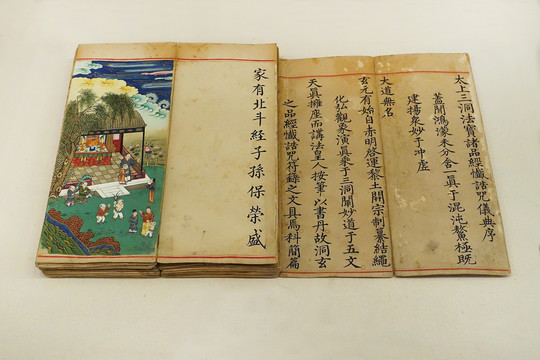 太上三洞法寶諸品經懺誥咒儀典序
蓋聞鴻濛未分含一真于混沌鰲極既
建揚衆妙于沖虛
大道無名
玄元有始自赤明啓運黎土開宗制纂結繩
化弘觀象演真乗于三洞闡妙道于五文
天真擁座而講法皇人按筆以書丹故洞玄
之品經懺誥咒符籙之文具爲科簡篇
家有北斗經子孫保榮盛